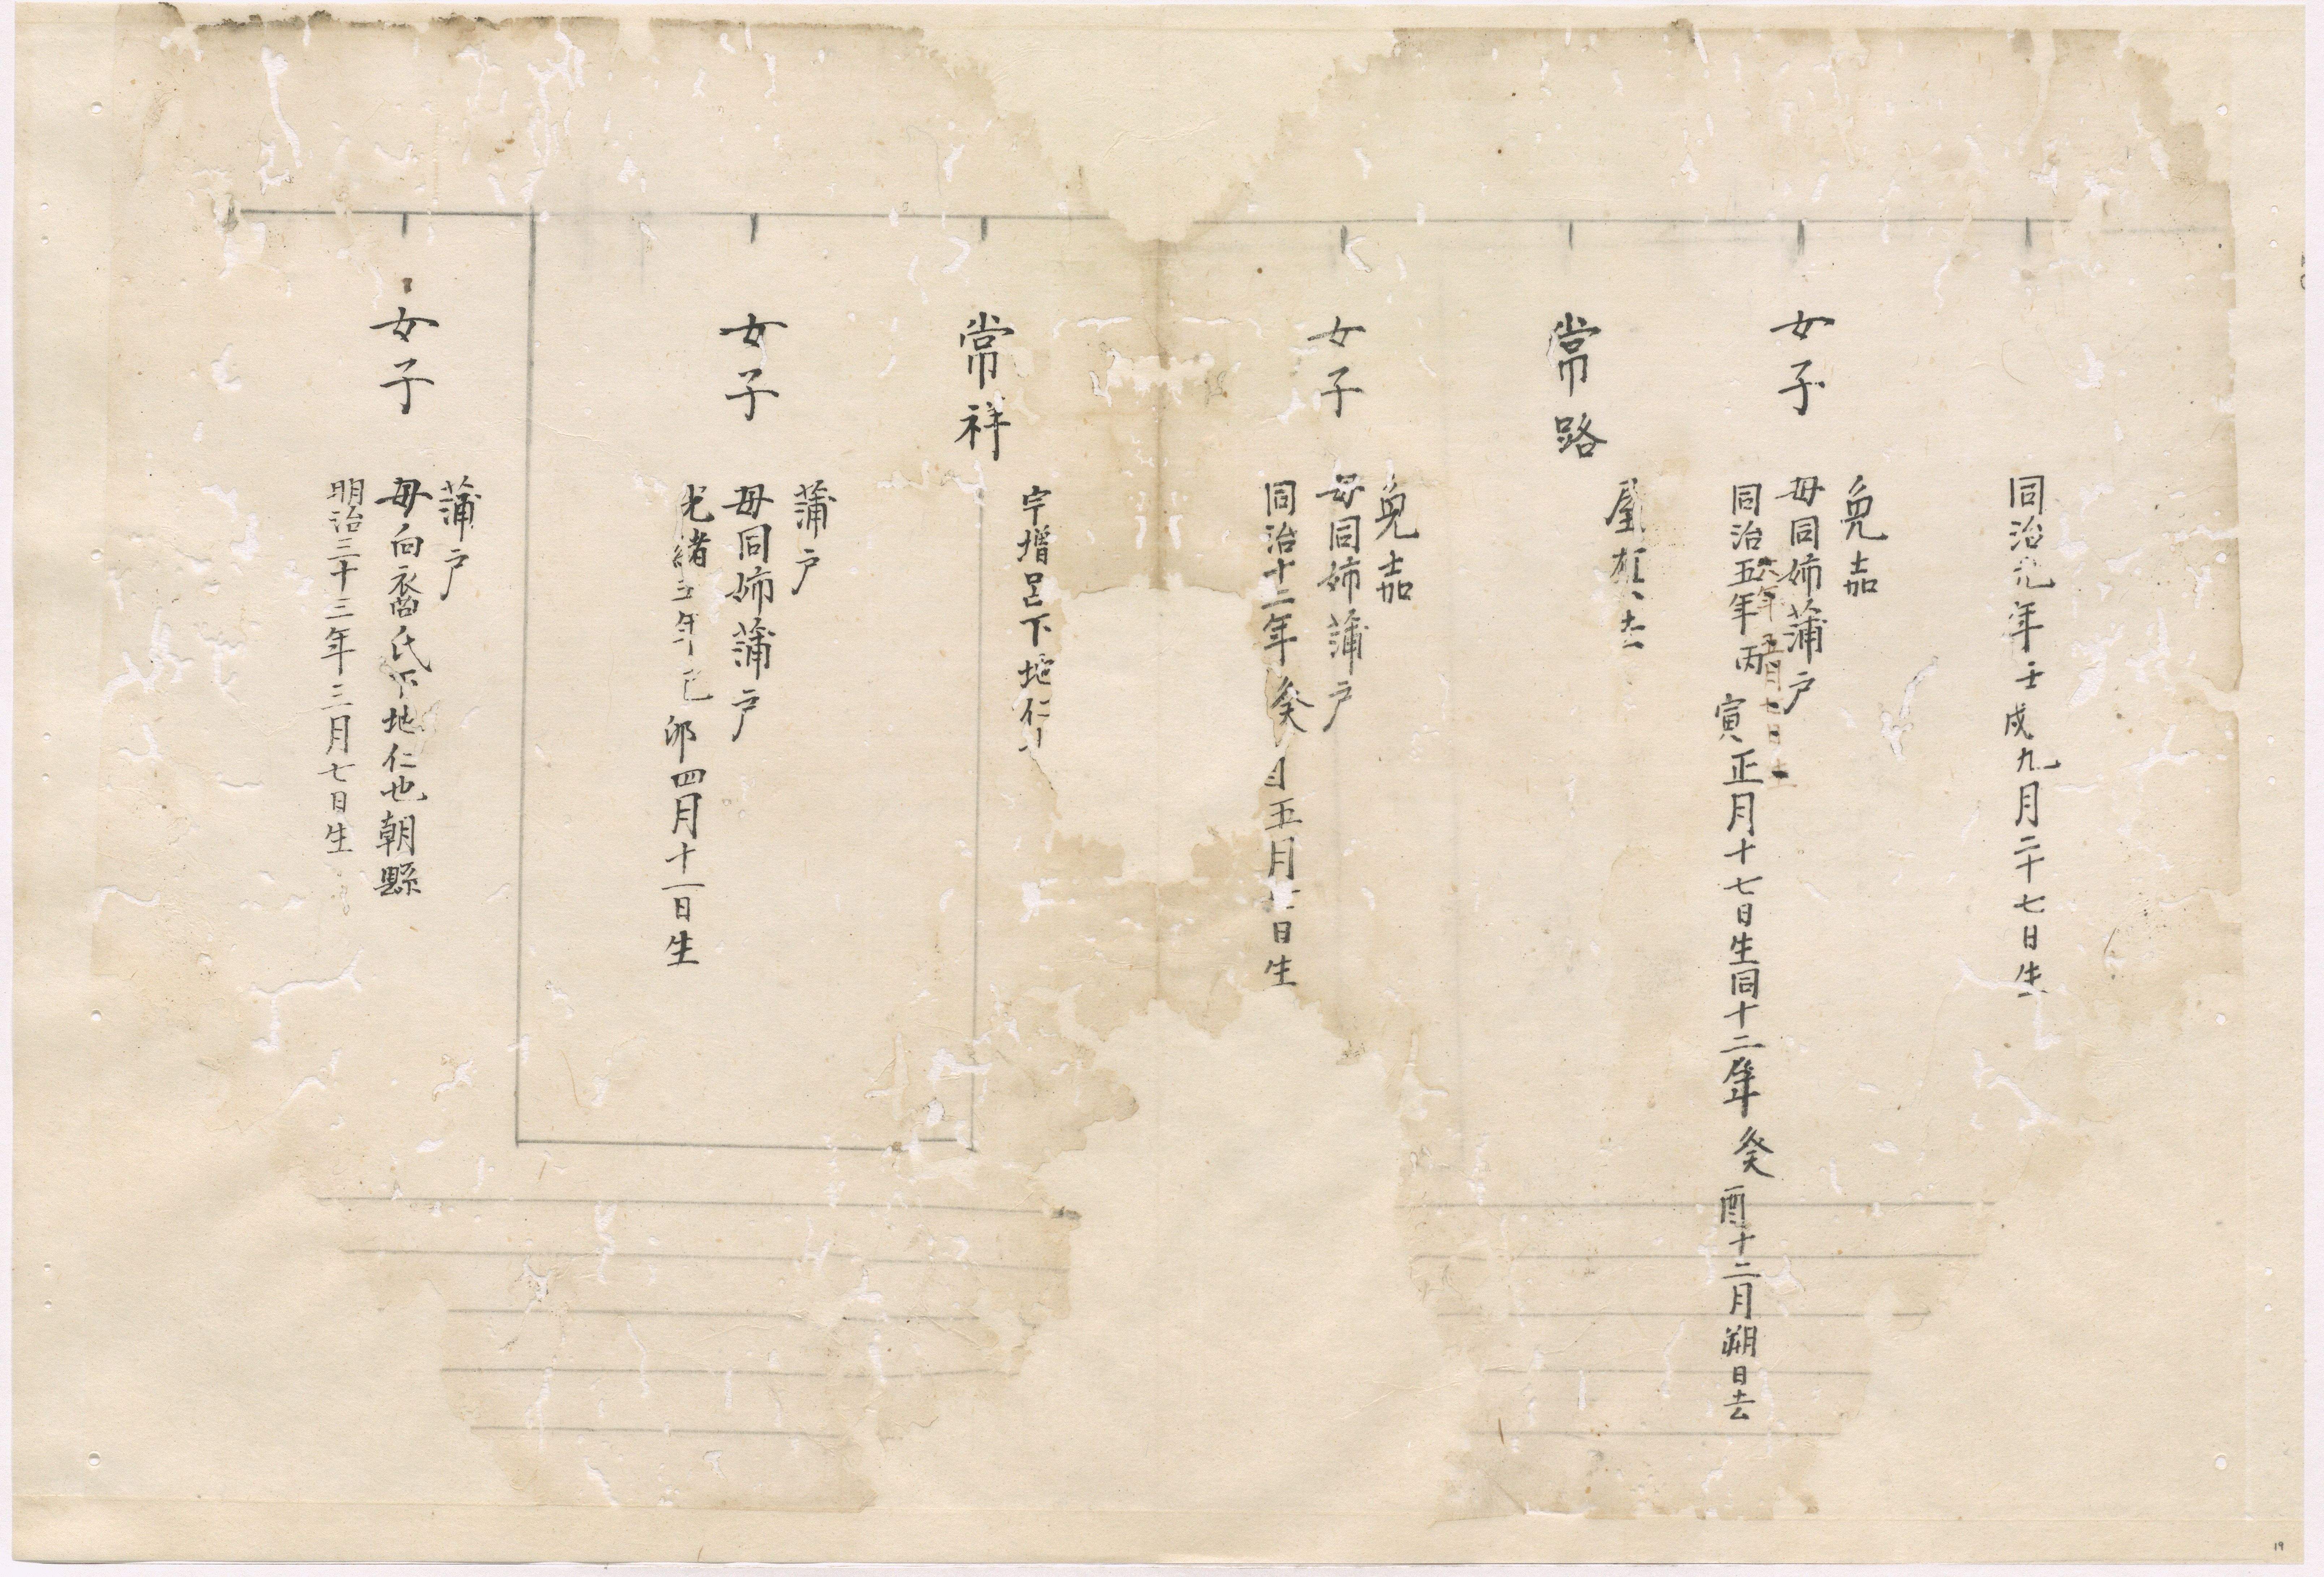 同治元年壬戌九月二十七日生
女子
兔嘉
母同姉蒲戸
同治五年丙寅正月十七日生同十二年癸酉十二月朔日去
常路
屋
女子
兔嘉
母同姉蒲戸
同治十二年癸酉五月廿日生
常祥
宇增呂下地仁
女子
蒲戸
母同姉蒲戸
光緒五年己卯四月十一日生
女子
蒲戸
母向裔氏下地仁也朝縣
明治三十三年三月七日生
19